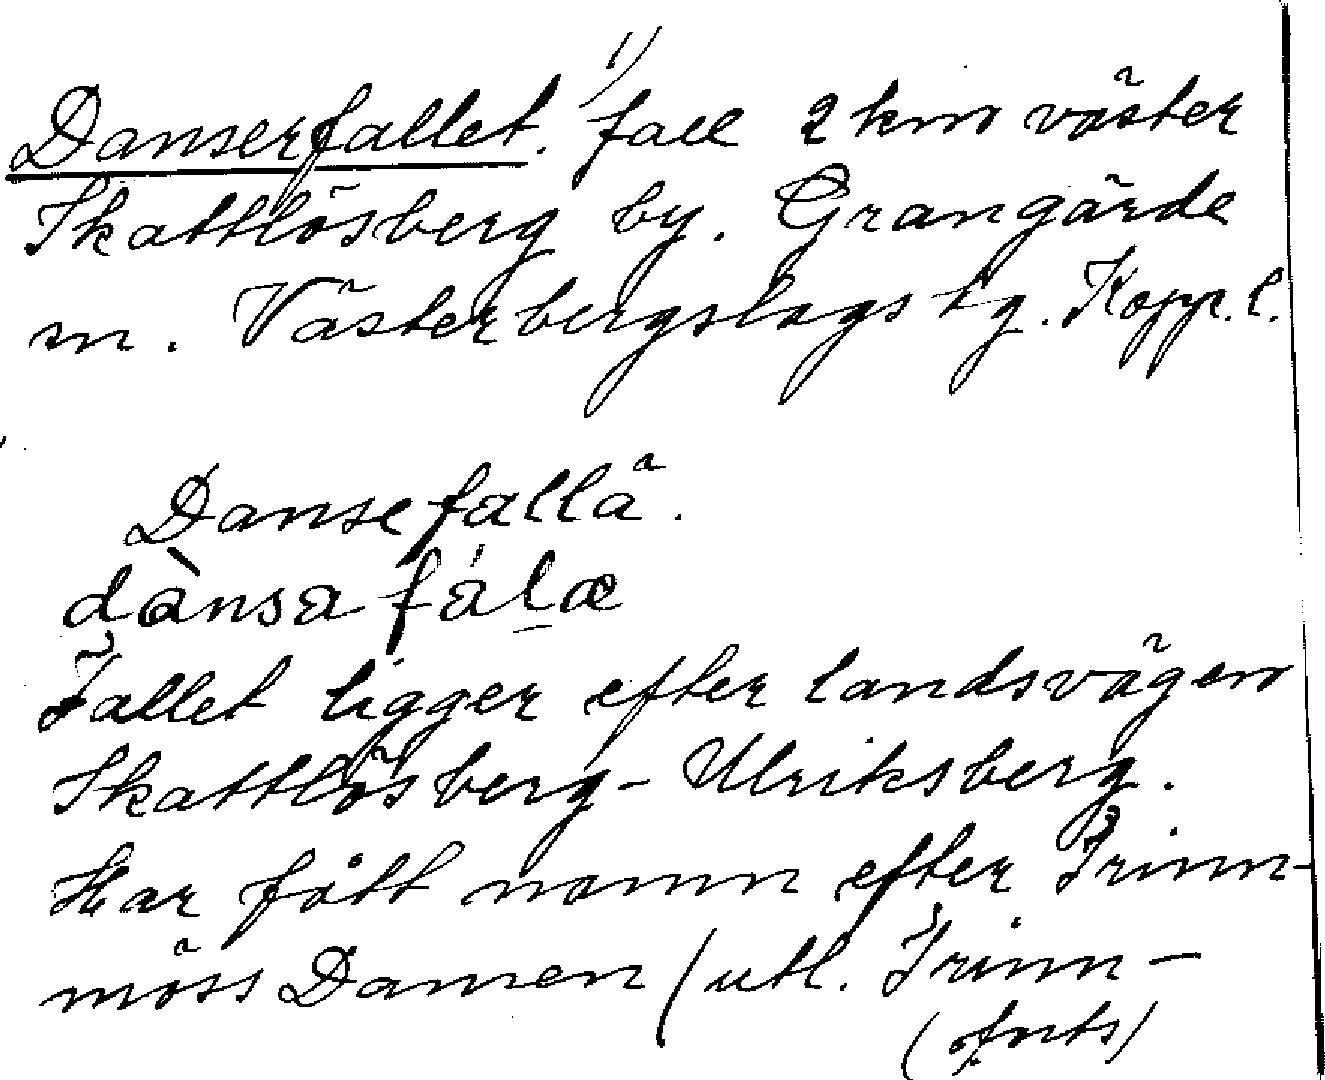 Danserfallet. 1) fall 2 km väster
Skattlösberg by. Grangärde
sn. Västerbergslags tg. Kopp. l.
Dansefallä.
dànsa fálæ
Fallet ligger efter landsvägen
Skattlösberg - Ulriksberg.
Har fått namn efter Finn-
möss Damen / utl. Finn-
(forts)